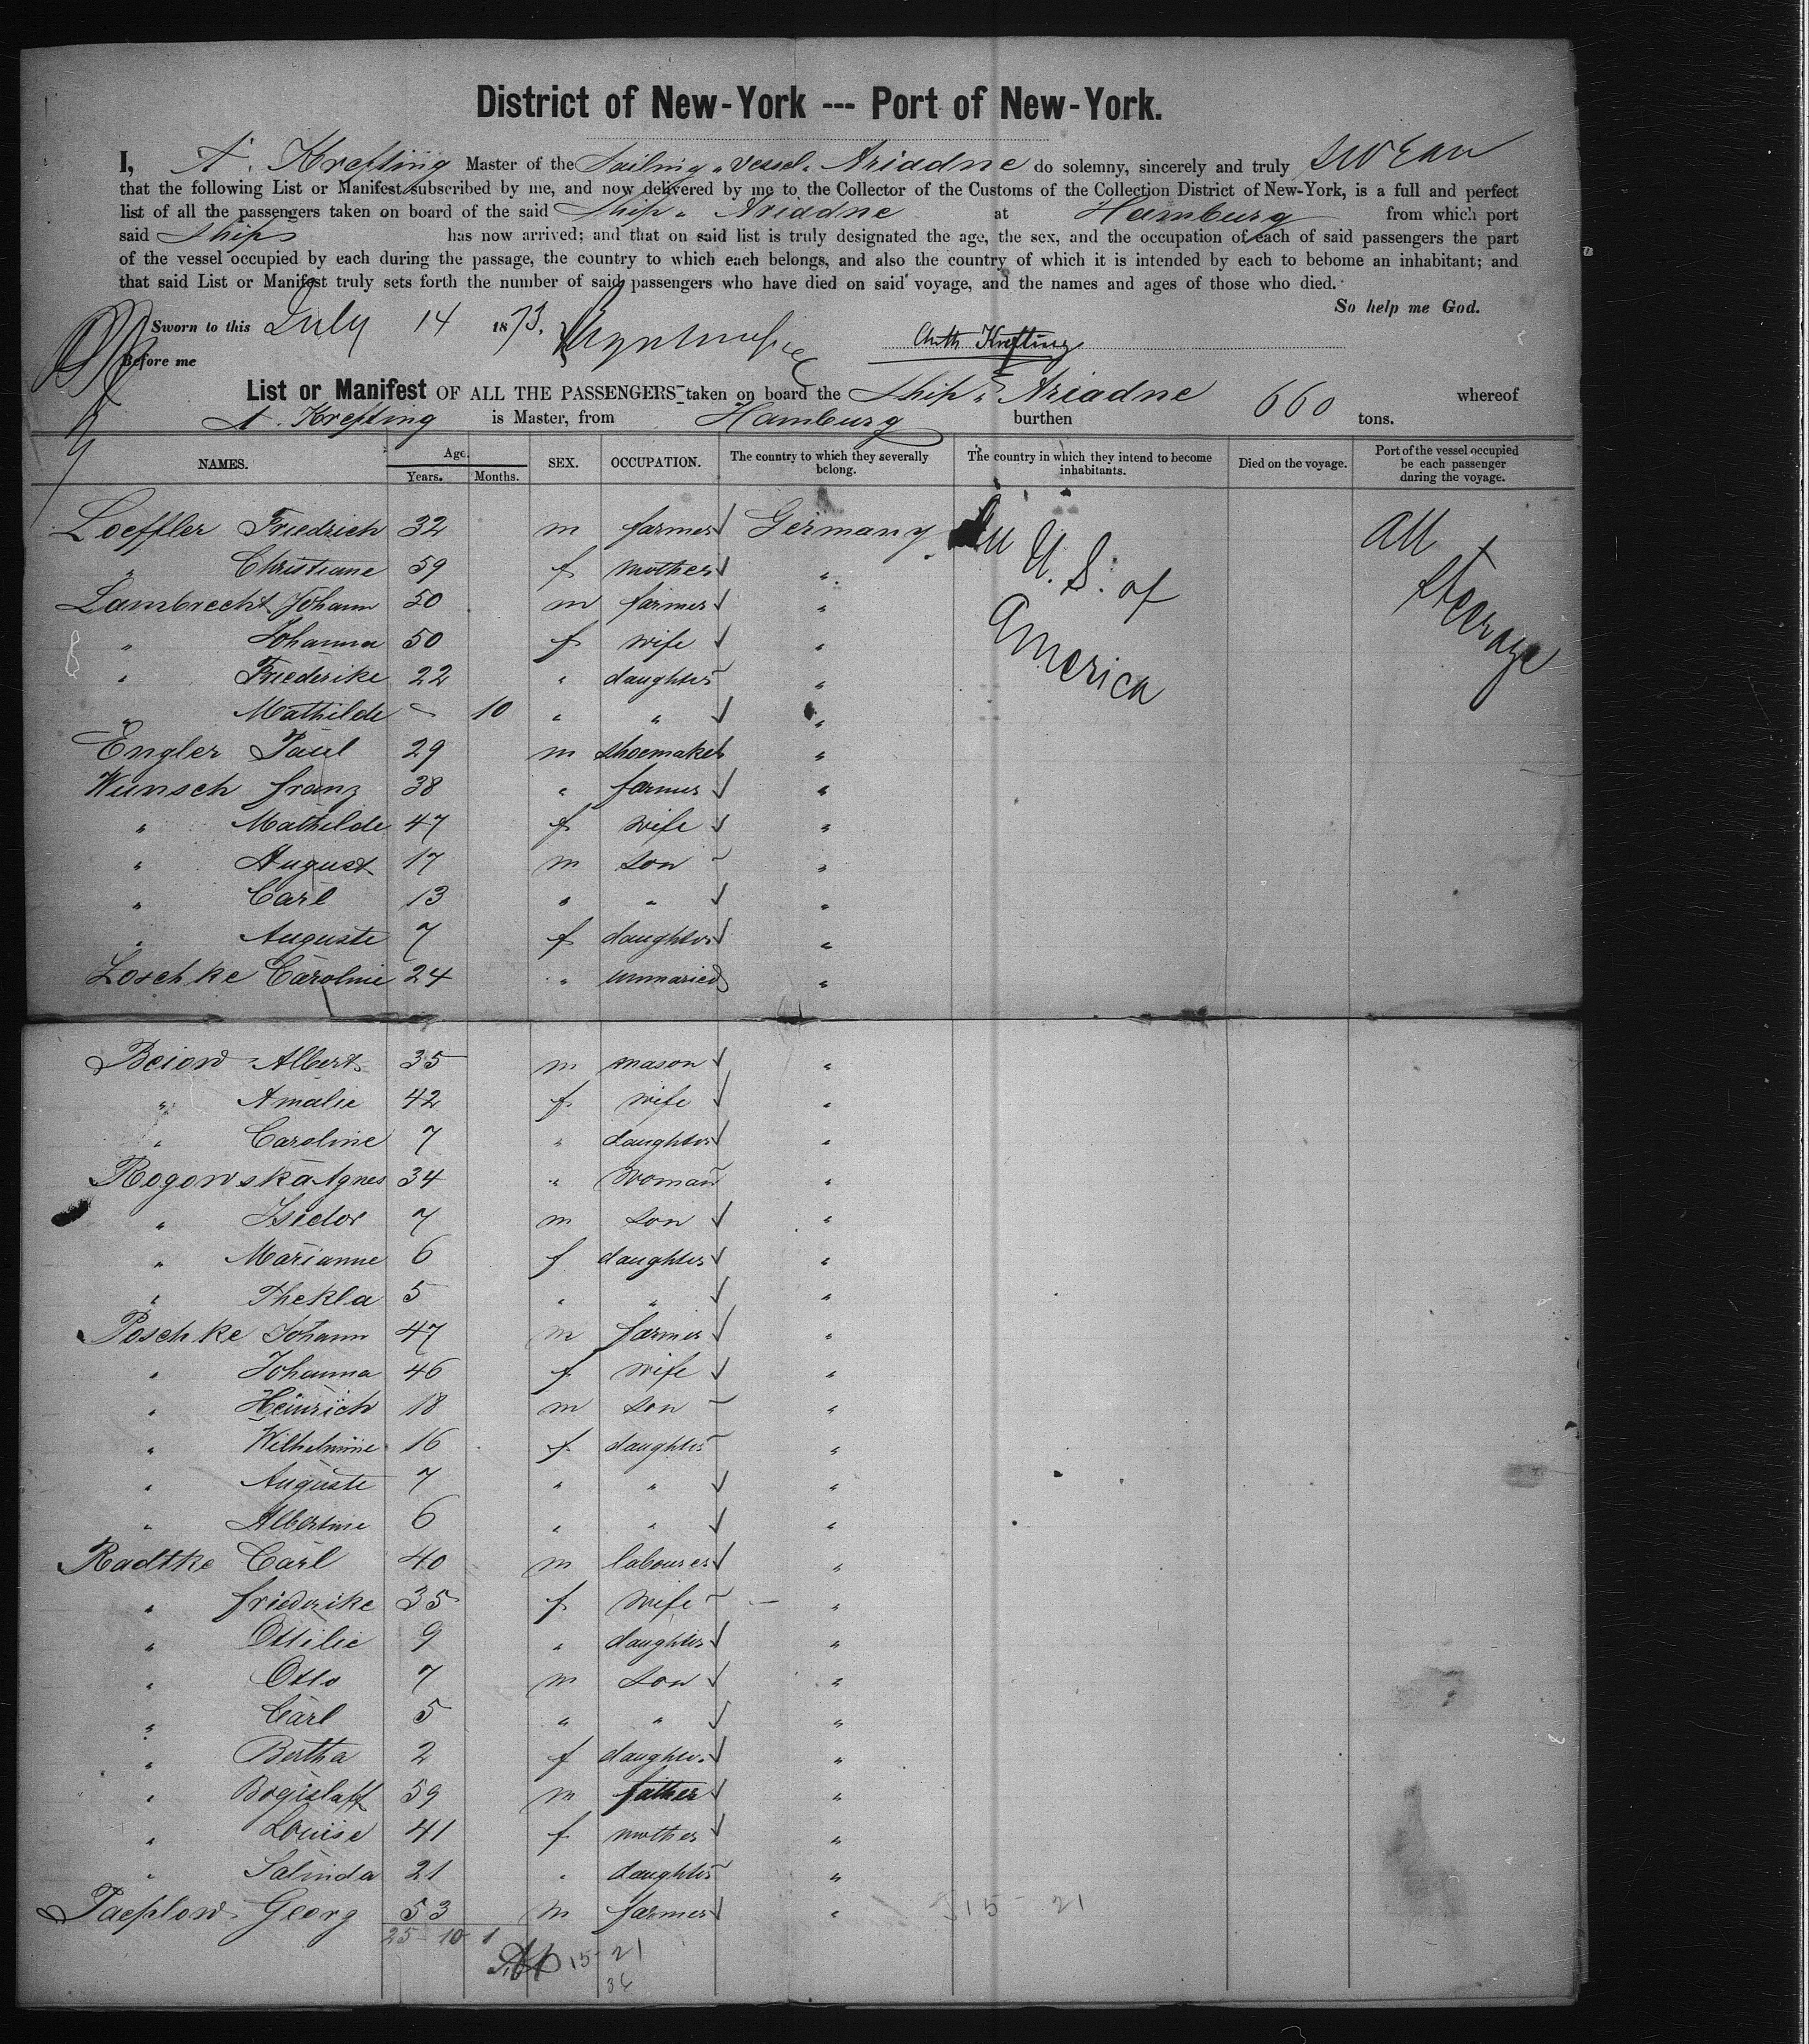 District of New-York --- Port of New-York.
I, A. Krefting Master of the Sailing vessel Ariadne do solemny, sincerely and truly swear
that the following List or Manifest subscribed by me, and now delivered by me to the Collector of the Customs of the Collection District of New-York, is a full and perfect
list of all the passengers taken on board of the said Ship Ariadne at Hamburg from which port
said Ship has now arrived; and that on said list is truly designated the age, the sex, and the occupation of each of said passengers the part
of the vessel occupied by each during the passage, the country to which each belongs, and also the country of which it is intended by each to bebome an inhabitant; and
that said List or Manifest truly sets forth the number of said passengers who have died on said voyage, and the names and ages of those who died.
So help me God.
Sworn to this July 14 1873.
Krefting
Before me
List or Manifest OF ALL THE PASSENGERS taken on board the Ship Ariadne whereof
A. Krefting is Master, from Hamburg burthen 660 tons.
NAMES. Age. Years. Months. SEX. OCCUPATION. The country to which they severally belong. The country in which they intend to become inhabitants. Died on the voyage. Port of the vessel occupied be each passenger during the voyage.
Loeffler Friedrich 32 m farmer Germany All U. S. of America All Steerage
" Christiane 59 f mother "
Lambrecht Johann 50 m farmer "
" Johanna 50 f wife "
" Friederike 22 " daughter "
" Mathilde - 10 " " "
Engler Paul 29 m shoemaker "
Wunsch Franz 38 " farmer "
" Mathilde 47 f wife "
" August 17 m son "
" Carl 13 " " "
" Auguste 7 f daughter "
Loschke Caroline 24 " unmaried "
Beiow Albert 35 m mason "
" Amalie 42 f wife "
" Caroline 7 " daughter "
Rogowska Agnes 34 " woman "
" Isidor 7 m son "
" Marianne 6 f daughter "
" Thekla 5 " " "
Poschke Johann 47 m farmer "
" Johanna 46 f wife "
" Heinrich 18 m son "
" Wilhelmine 16 f daughter "
" Auguste 7 " " "
" Albertine 6 " " "
Radtke Carl 40 m labourer "
" Friederike 35 f wife "
" Ottilie 9 " daughter "
" Otto 7 m son "
" Carl 5 " " "
" Bertha 2 f daughter "
" Bogislaff 59 m father "
" Louise 41 f mother "
" Salinda 21 " daughter "
Taeplow Georg 53 m farmer " 15 21
25 10 1
15 21
36